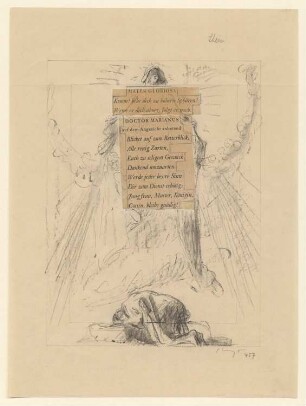 MATER GLORIOSA
Komm! hebe dich zu höhern Sphären!
Wenn er dich ahnet, folgt er nach.
DOCTOR MARIANUS
auf dem Angesicht anbetend
Blicket auf zum Retterblick,
Alle reuig Zarten,
Euch zu seligem Geschick
Dankend umzuarten.
Werde jeder bessre Sinn
Dir zum Dienst erbötig;
Jungfrau, Mutter, Königin,
Göttin, bleibe gnädig!